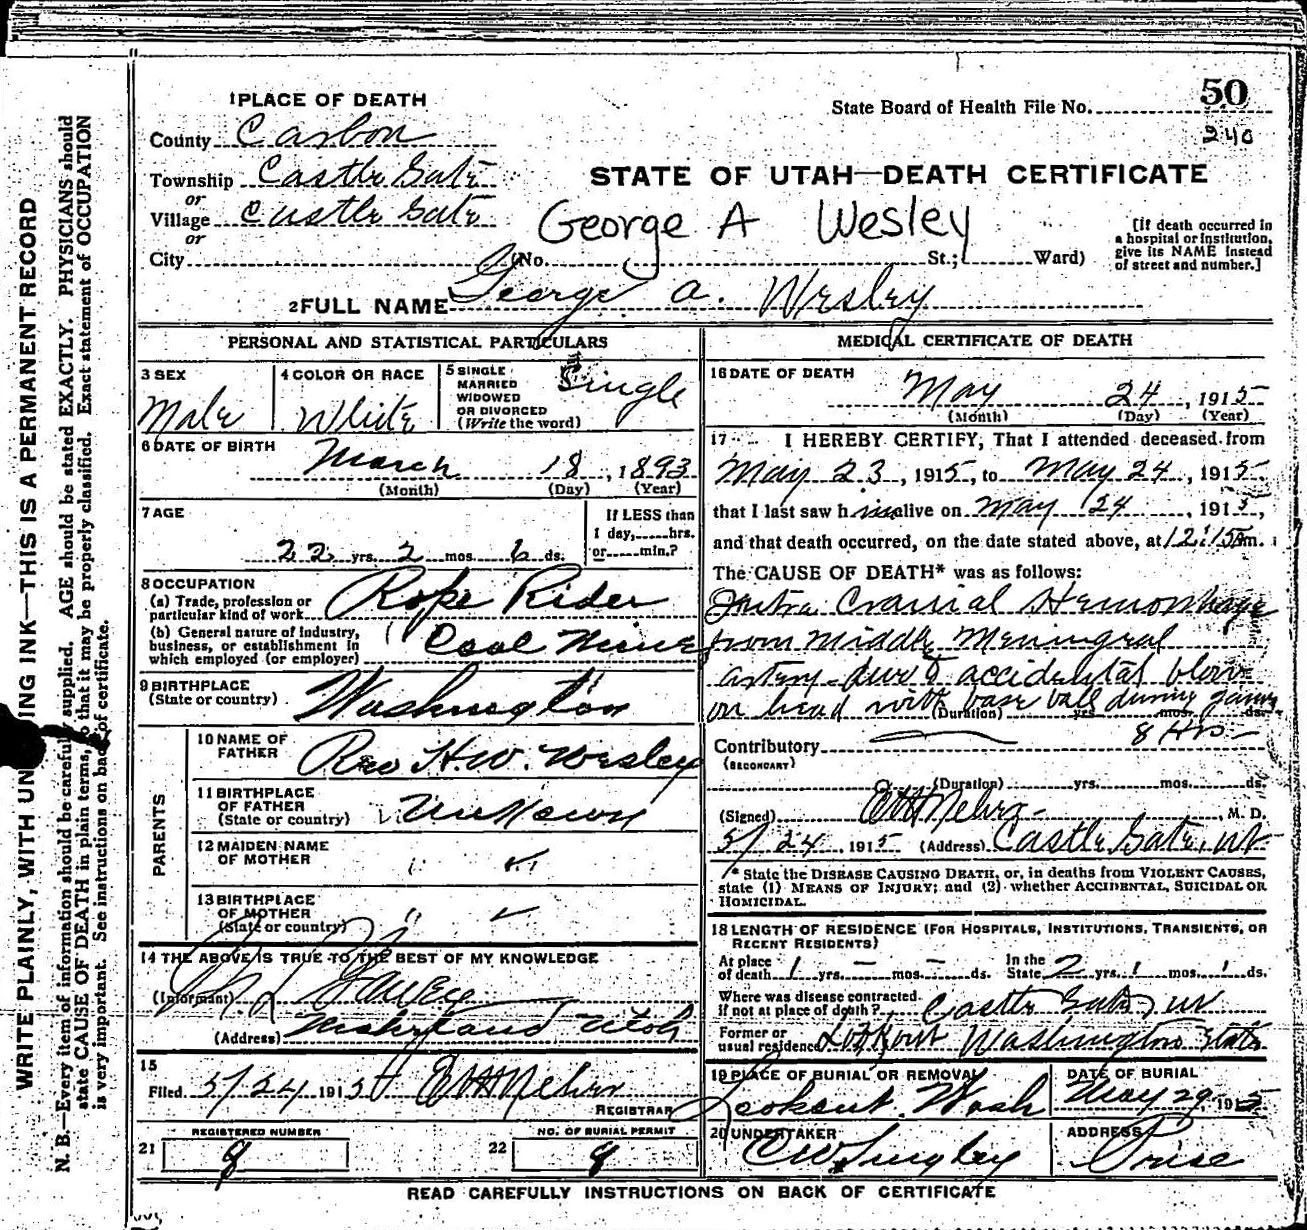 1 PLACE OF DEATH
County Carbon
Township Castle Gate
or
Village Castle Gate
or
City (No. St.; Ward)
State Board of Health File No. 50
240
STATE OF UTAH—DEATH CERTIFICATE
George A Wesley
[If death occurred in
a hospital or institution,
give its NAME instead
of street and number.]
2 FULL NAME George A. Wesley
PERSONAL AND STATISTICAL PARTICULARS
3 SEX
Male
4 COLOR OR RACE
White
5 SINGLE
MARRIED
WIDOWED
OR DIVORCED
(Write the word)
Single
6 DATE OF BIRTH
March 18, 1893
(Month) (Day) (Year)
7 AGE
22 yrs. 2 mos. 6 ds.
If LESS than
1 day, hrs.
or min.?
8 OCCUPATION
(a) Trade, profession or
particular kind of work
Rope Rider
(b) General nature of industry,
business, or establishment in
which employed (or employer)
Coal Mine
9 BIRTHPLACE
(State or country)
Washington
PARENTS
10 NAME OF
FATHER
Rev H.W. Wesley
11 BIRTHPLACE
OF FATHER
(State or country)
Unknown
12 MAIDEN NAME
OF MOTHER
" "
13 BIRTHPLACE
OF MOTHER
(State or country)
" "
14 THE ABOVE IS TRUE TO THE BEST OF MY KNOWLEDGE
(Informant)
(Address) Utah
15
Filed 5/24 1915
REGISTRAR
21
REGISTERED NUMBER
8
22
NO. OF BURIAL PERMIT
8
MEDICAL CERTIFICATE OF DEATH
16 DATE OF DEATH
May 24, 1915
(Month) (Day) (Year)
17 I HEREBY CERTIFY, That I attended deceased from
May 23, 1915, to May 24, 1915
that I last saw him alive on May 24, 1915,
and that death occurred, on the date stated above, at 12:15 m.
The CAUSE OF DEATH* was as follows:
Intra Cranial Hemorrhage
from Middle Meningeal
artery due to accidental blow
on head with base ball during game
(Duration) yrs. mos. ds.
8 Hrs
Contributory
(SECONDARY)
(Duration) yrs. mos. ds.
(Signed) , M. D.
5/24, 1915 (Address) Castle Gate, Ut
* State the DISEASE CAUSING DEATH, or, in deaths from VIOLENT CAUSES,
state (1) MEANS OF INJURY; and (2) whether ACCIDENTAL, SUICIDAL OR
HOMICIDAL.
18 LENGTH OF RESIDENCE (FOR HOSPITALS, INSTITUTIONS, TRANSIENTS, OR
RECENT RESIDENTS)
At place
of death 1 yrs. – mos. – ds.
In the
State 2 yrs. 1 mos. 1 ds.
Where was disease contracted
if not at place of death? Castle Gate, Ut
Former or
usual residence Lookout Washington State
19 PLACE OF BURIAL OR REMOVAL
Lookout, Wash
DATE OF BURIAL
May 29, 1915
20 UNDERTAKER
ADDRESS
Price
READ CAREFULLY INSTRUCTIONS ON BACK OF CERTIFICATE
WRITE PLAINLY, WITH UN ING INK—THIS IS A PERMANENT RECORD
N. B.—Every item of information should be carefully supplied. AGE should be stated EXACTLY. PHYSICIANS should
state CAUSE OF DEATH in plain terms, so that it may be properly classified. Exact statement of OCCUPATION
is very important. See instructions on back of certificate.